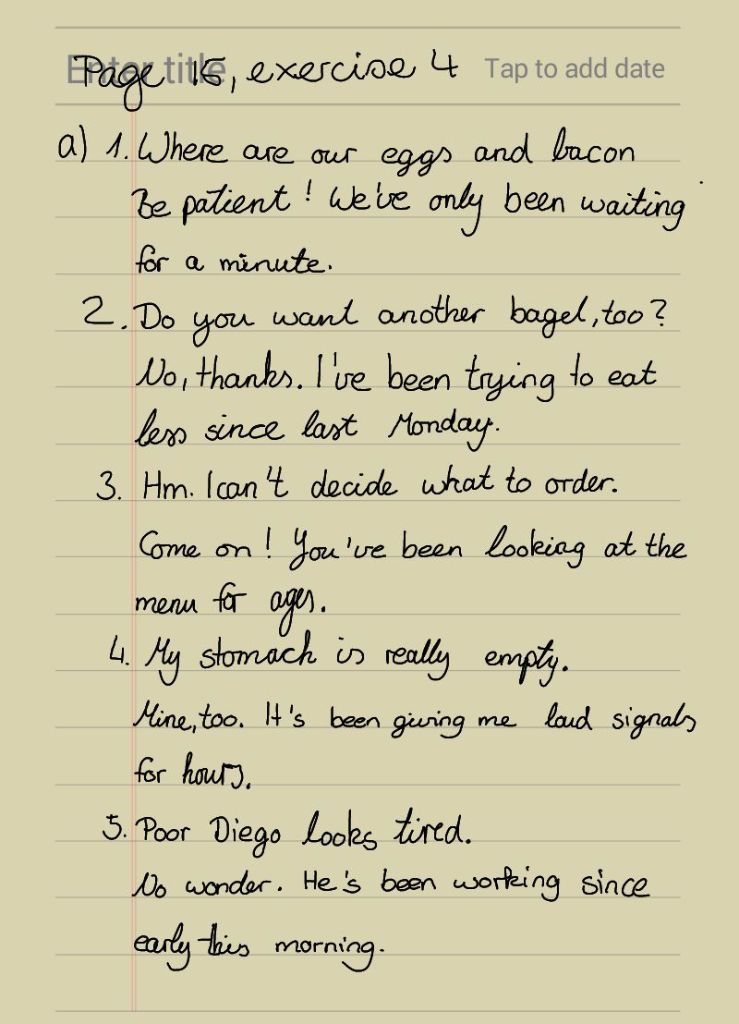 Enter title
Page 15, exercise 4 Tap to add date
a) 1. Where are our eggs and bacon
Be patient! We've only been waiting
for a minute.
2. Do you want another bagel, too?
No, thanks. I've been trying to eat
less since last Monday.
3. Hm. I can't decide what to order.
Come on! You've been looking at the
menu for ages.
4. My stomach is really empty.
Mine, too. It's been giving me loud signals
for hours.
5. Poor Diego looks tired.
No wonder. He's been working since
early this morning.